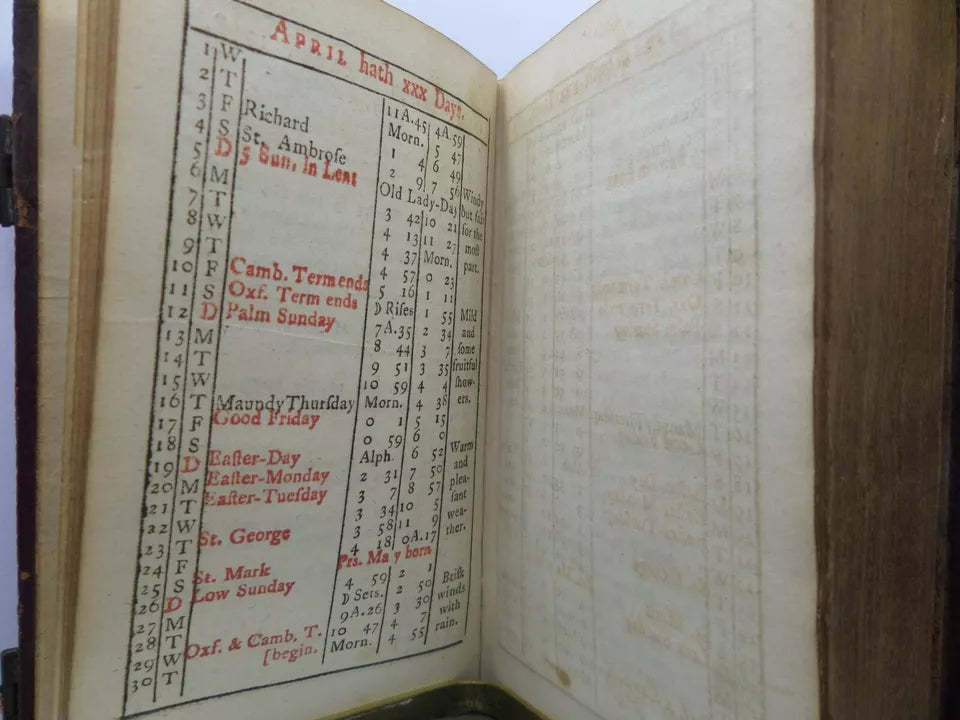 APRIL hath xxx Days.
1 W 11A.45 4A.59
2 T Morn. 5 47
3 F Richard 1 4 6 49
4 S St. Ambroſe 2 9 7 56
5 D 5 Sun. in Lent Old Lady-Day Windy
6 M 3 42 10 21 but fair
7 T 4 13 11 27 for the
8 W 4 37 Morn. moſt
9 T 4 57 0 23 part.
10 F Camb. Term ends 5 16 1 11
11 S Oxf. Term ends D Riſes 1 55 Mild
12 D Palm Sunday 7A.35 2 34 and
13 M 8 44 3 7 ſome
14 T 9 51 3 35 fruitful
15 W 10 59 4 4 ſhow-
16 T Maundy Thurſday Morn. 4 38 ers.
17 F Good Friday 0 1 5 15
18 S 0 59 6 0
19 D Eaſter-Day Alph. 6 52 Warm
20 M Eaſter-Monday 2 31 7 50 and
21 T Eaſter-Tueſday 3 7 8 57 plea-
22 W 3 34 10 5 ſant
23 T St. George 3 58 11 9 wea-
24 F 4 18 0A.17 ther.
25 S St. Mark Prs. Mary born
26 D Low Sunday 4 59 2 1
27 M D Sets. 2 50 Briſk
28 T 9A.26 3 30 winds
29 W Oxf. & Camb. T. 10 47 4 7 with
30 T [begin. Morn. 4 55 rain.